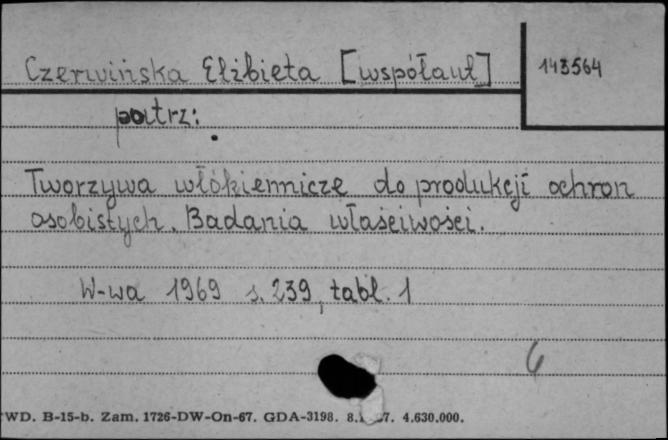 Czerwińska Elżbieta [współaut]
143564
patrz:
Tworzywa włókiennicze do produkcji ochron
osobistych. Badania właściwości.
W-wa 1969 s. 239, tabl. 1
6
WD. B-15-b. Zam. 1726-DW-On-67. GDA-3198. 4.630.000.